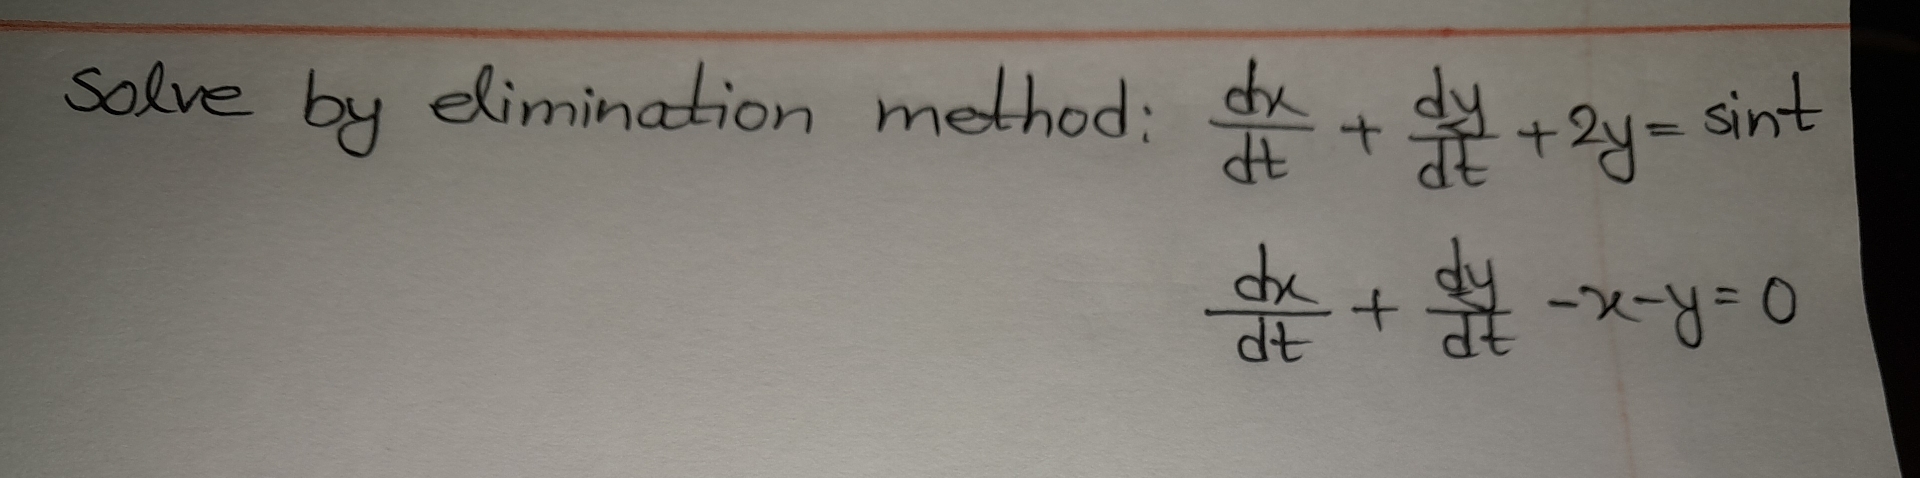 Solve by elimination method: dx/dt + dy/dt + 2y = sint
dx/dt + dy/dt - x - y = 0